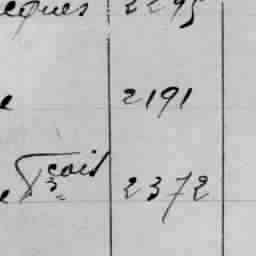 cques 2295
e 2191
e Fçois 2372